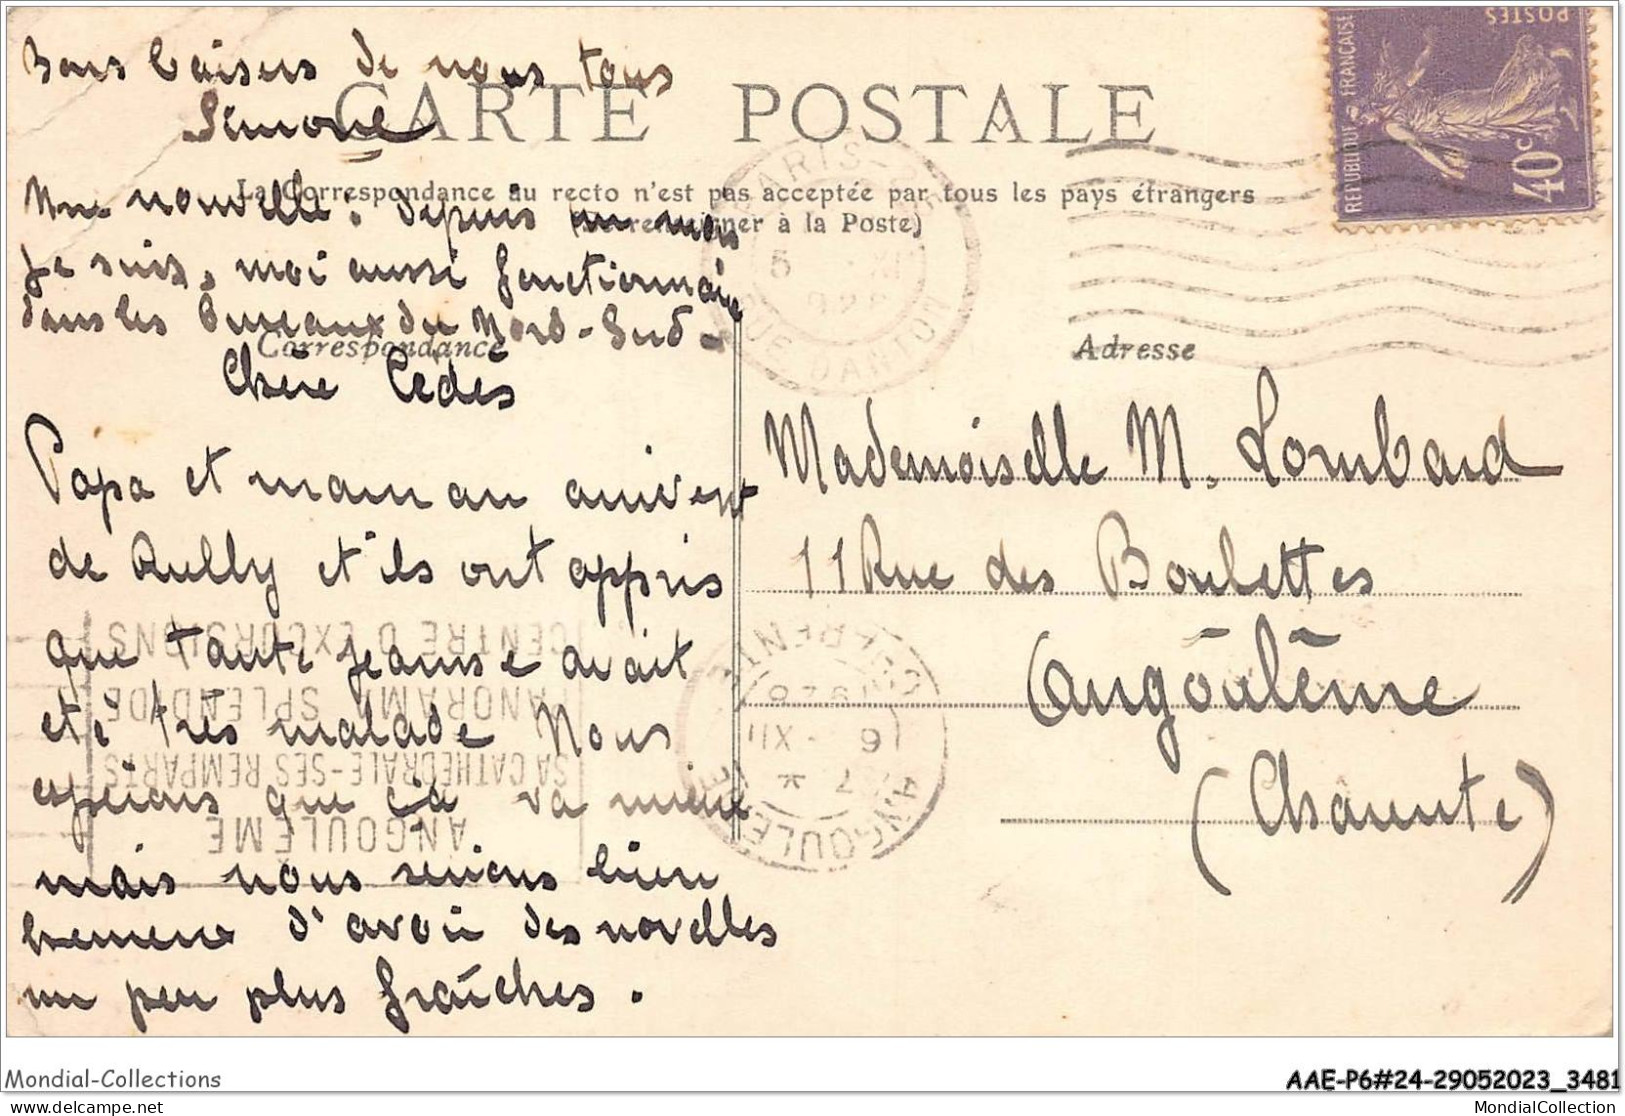 Bons baisers de nous tous
Simone
CARTE POSTALE
La Correspondance au recto n'est pas acceptée par tous les pays étrangers
à la Poste)
Une nouvelle. Depuis un mois
je suis, moi aussi fonctionnaire
dans les bureaux du Nord-Sud-
Correspondance
Chère Cedès
Papa et maman arrivent
de Rully et ils ont appris
que tante Jeanne avait
été très malade Nous
espérons que ça va mieux
mais nous serions bien
heureux d'avoir des novelles
un peu plus fraîches.
POSTES
REPUBLIQUE FRANÇAISE
40c
PARIS
5 XII
RUE DANTON
Adresse
Mademoiselle M. Lombard
11 Rue des Boulettes
Angoulême
(Charente)
ANGOULÊME
SA CATHÉDRALE-SES REMPARTS
PANORAMA SPLENDIDE
CENTRE D'EXCURSIONS
ANGOULEME
6 - XII
1928
Mondial-Collections
AAE-P6#24-29052023_3481
delcampe.net
MondialCollection